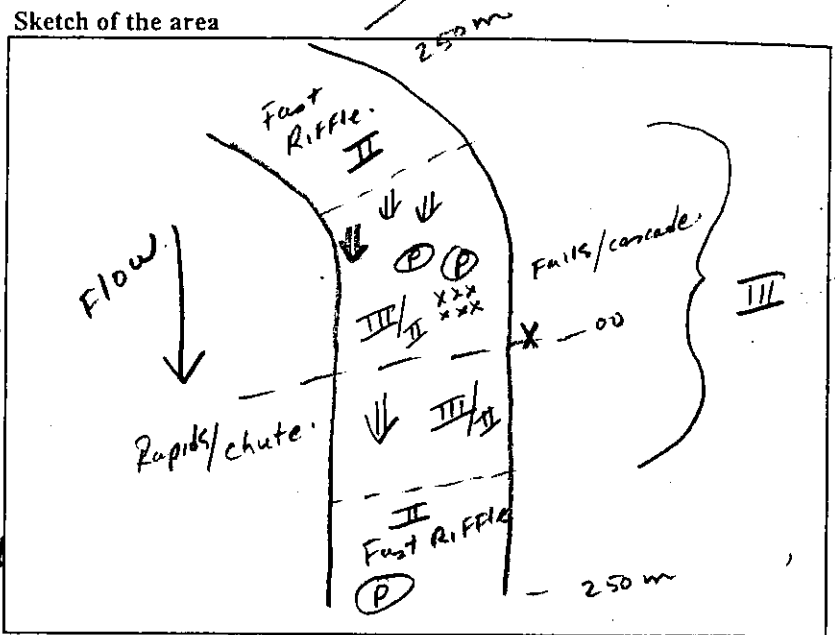 Sketch of the area
250 m
Fast
Riffle.
II
Flow
P P
Falls/cascade.
xxx
xxx
III/II
III
X
00
Rapids/chute.
III/II
II
Fast Riffle
P
250 m